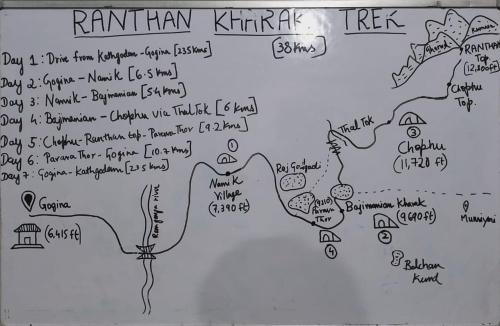 RANTHAN KHARAK TREK
[38Kms]
Day 1: Drive from Kathgodam-Gogina [235Kms]
Day 2: Gogina-Namik [6.5Kms]
Day 3: Namik-Bajimanian [5.4Kms]
Day 4: Bajimanian-Chophu via ThalTok [6 Kms]
Day 5: Chophu-Ranthan top-ParavaThor [9.2Kms]
Day 6: ParavaThor-Gogina [10.7Kms]
Day 7: Gogina-Kathgodam [235Kms]
RANTHAN
Top
(12,200ft)
Chophu
Top.
ThalTok
3
Chophu
(11,720 ft)
1
Namik
Village
(7,390 ft)
(9210)
Parava
Thor
4
Bajimanian Kharak
(9690ft)
2
Munsiyari
Balchan
Kund
Gogina
(6,415ft)
Ramganga river